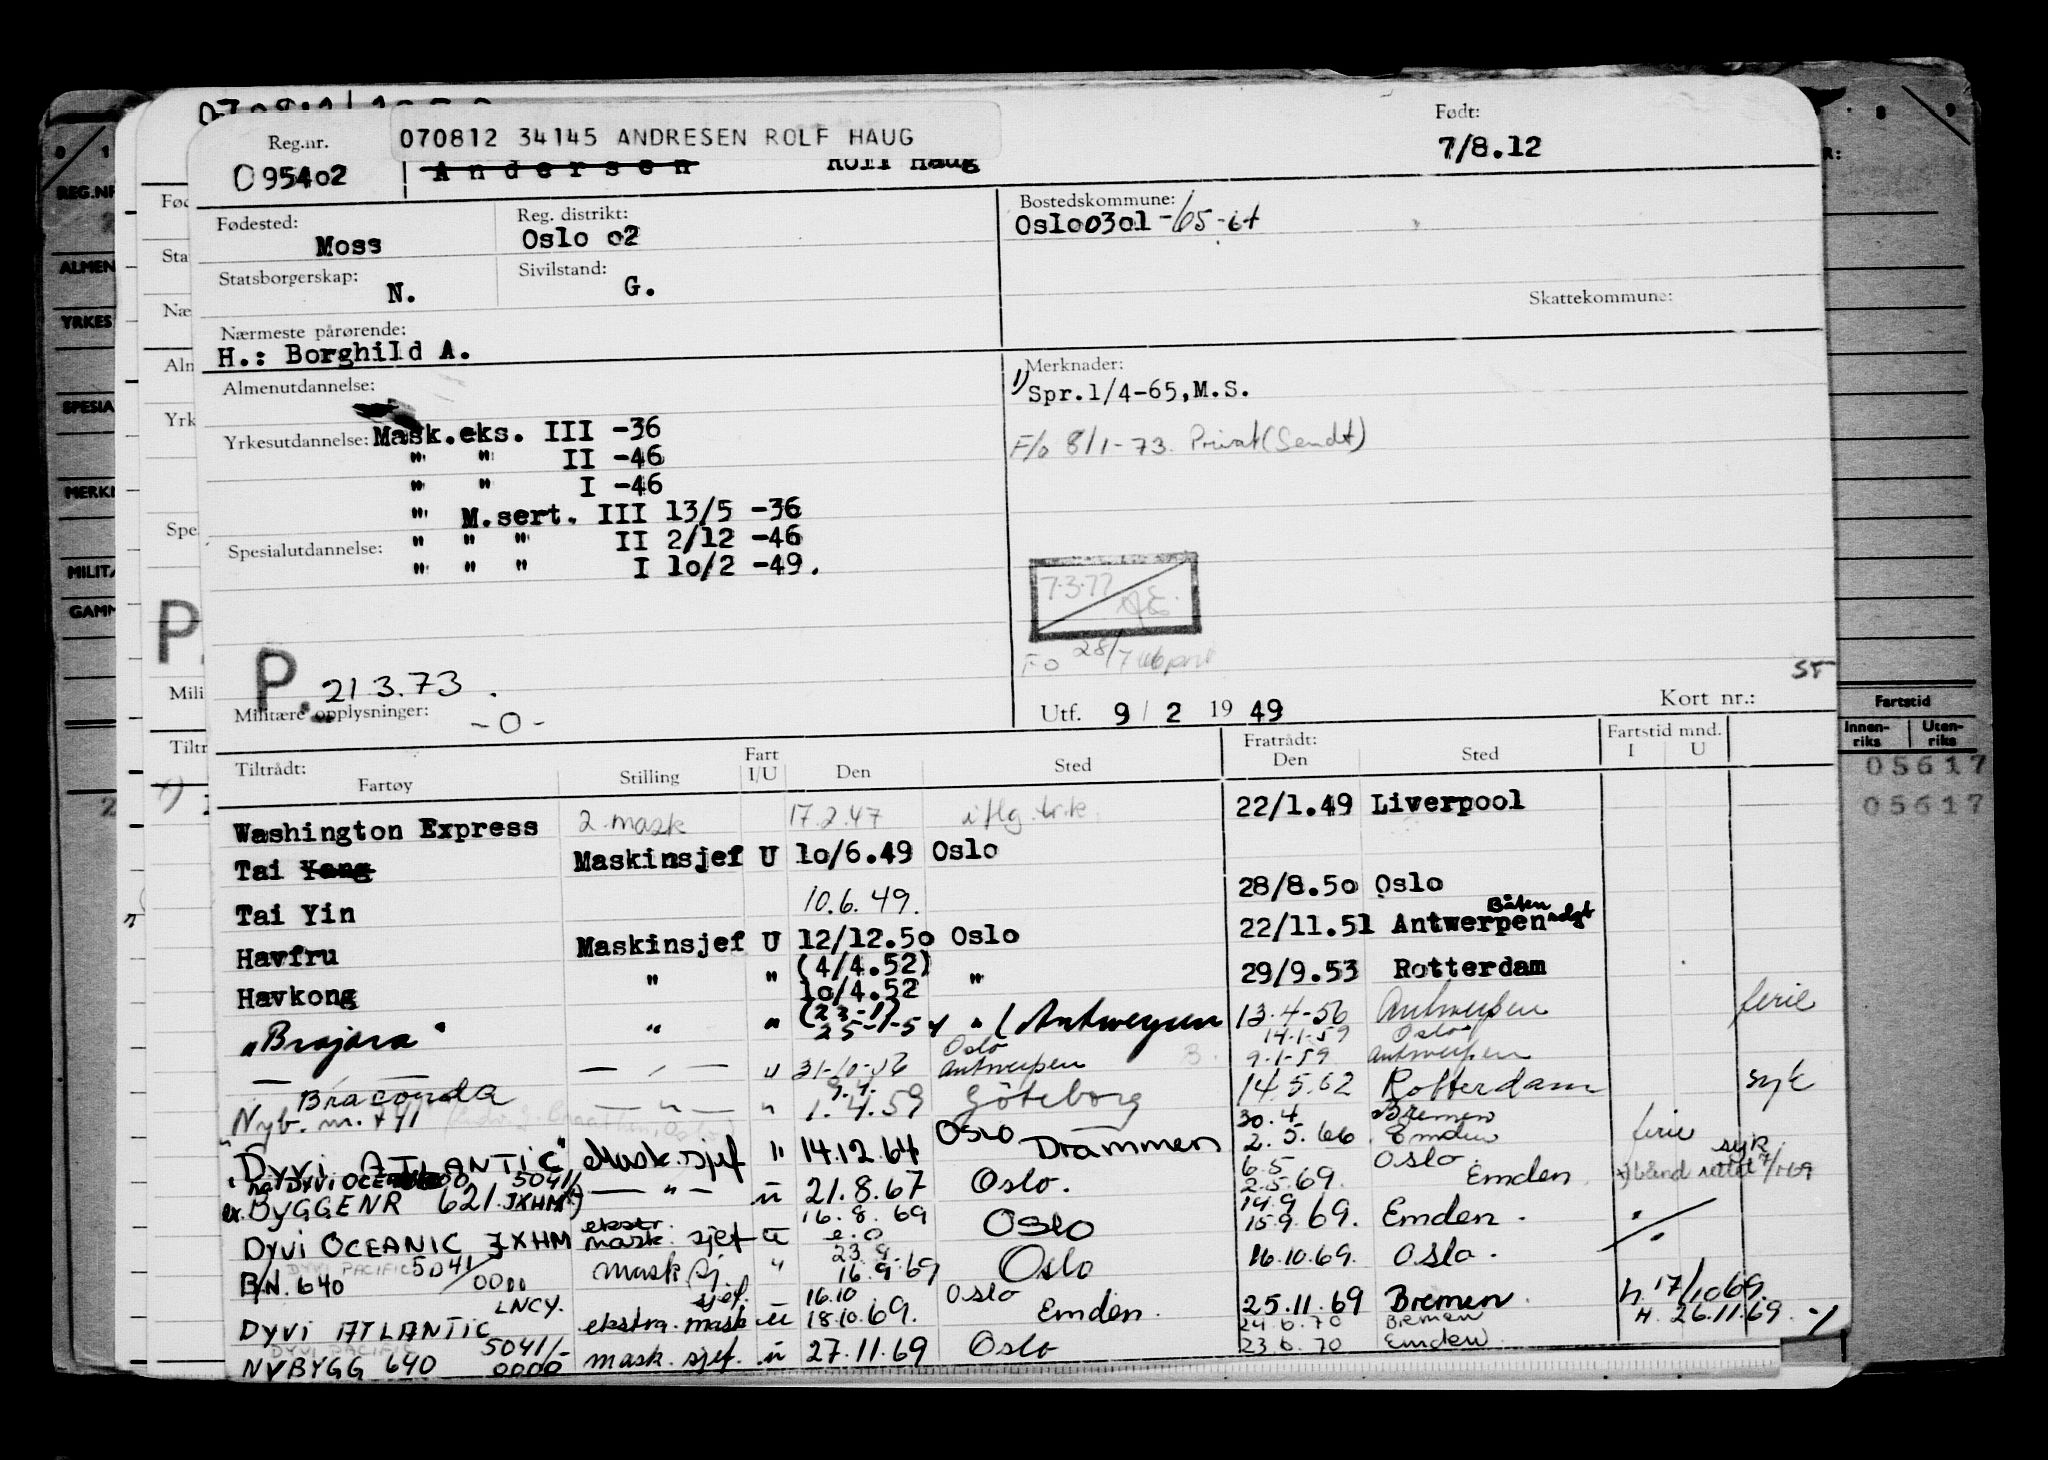 Reg.nr.
095402
070812 34145 ANDRESEN ROLF HAUG
Andersen Rolf Haug
Født:
7/8.12
Fødested:
Moss
Reg. distrikt:
Oslo 02
Bostedskommune:
Oslo 0301
Statsborgerskap:
N.
Sivilstand:
G.
Skattekommune:
Nærmeste pårørende:
H.: Borghild A.
Almenutdannelse:
Merknader:
1) Spr.1/4-65,M.S.
F/o 8/1-73. Privat (Sendt)
Yrkesutdannelse: Mask.eks. III -36
" " II -46
" " I -46
" M.sert. III 13/5 -36
Spesialutdannelse: " " " II 2/12 -46
" " " I 10/2 -49.
7.3.77
P. 21 3.73.
Militære opplysninger:
-0-
Utf. 9 / 2 1949
Kort nr.:
Tiltrådt:
Fartøy Stilling Fart I/U Den Sted
Fratrådt:
Den Sted Fartstid mnd. I U
Washington Express 2. mask 17.2.47 22/1.49 Liverpool
Tai Yang Maskinsjef U 10/6.49 Oslo
Tai Yin 10.6.49. 28/8.50 Oslo
Havfru Maskinsjef U 12/12.50 Oslo 22/11.51 Antwerpen Båten solgt
Havkong " " (4/4.52) 10/4.52 " 29/9.53 Rotterdam
"Brajara" " " (23-1) 25-1-54 " (Antwerpen 13.4-56 Antwerpen ferie
— " — " 31-10-56 Oslo Antwerpen 14.1-59 Oslo 9.1-59 Antwerpen
Braconda
Nyb. nr. 441 — " — " 9.4. 1.4.59 Göteborg 14.5.62 Rotterdam syk
"DYVI ATLANTIC" Mask.sjef " 14.12.64 Oslo Drammen 30.4 Bremen 2.5.66 Emden ferie
BYGGENR 621 JXHM — " — u 21.8.67 Oslo. 6.5 Oslo. 2.5.69. Emden syk
DYVI OCEANIC JXHM ekstr. mask. sjef u 16.8.69 Oslo 14.9 15.9.69. Emden.
DYVI PACIFIC 5041/0000
BN. 640 mask sj. " 23.9. 16.9.69 Oslo 16.10.69. Oslo.
DYVI ATLANTIC LNCY. ekstra. mask sjef. u 16.10 Oslo 18.10.69. Emden. 25.11.69 Bremen. h. 17/10 69.
DYVI PACIFIC 24.6.70 Bremen H. 26.11.69.
NYBYGG 640 5041/-0000 mask. sjef. u 27.11.69 Oslo 23.6.70 Emden.
REG.NR
ALMEN
YRKES
SPESIA
MERKN
MILITÆ
GAMM
Fartstid
Innen-riks Uten-riks
05617
05617